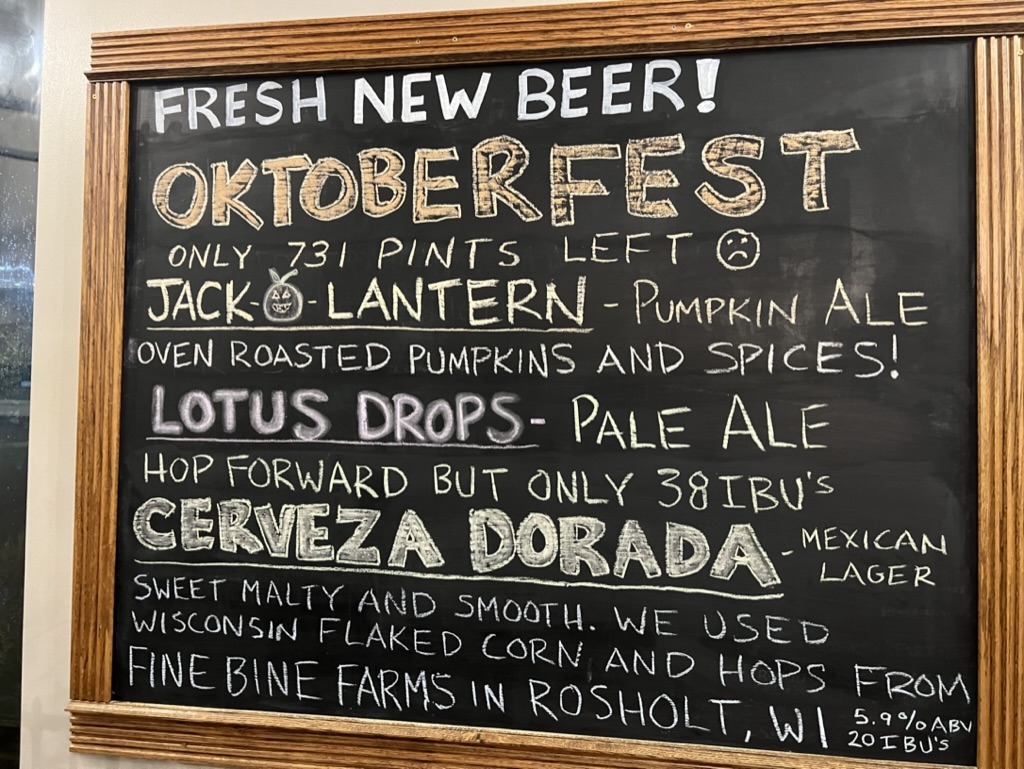 FRESH NEW BEER!
OKTOBERFEST
ONLY 731 PINTS LEFT ☹
JACK-O-LANTERN - PUMPKIN ALE
OVEN ROASTED PUMPKINS AND SPICES!
LOTUS DROPS - PALE ALE
HOP FORWARD BUT ONLY 38 IBU'S
CERVEZA DORADA - MEXICAN LAGER
SWEET MALTY AND SMOOTH. WE USED
WISCONSIN FLAKED CORN AND HOPS FROM
FINE BINE FARMS IN ROSHOLT, WI
5.9% ABV
20 IBU'S